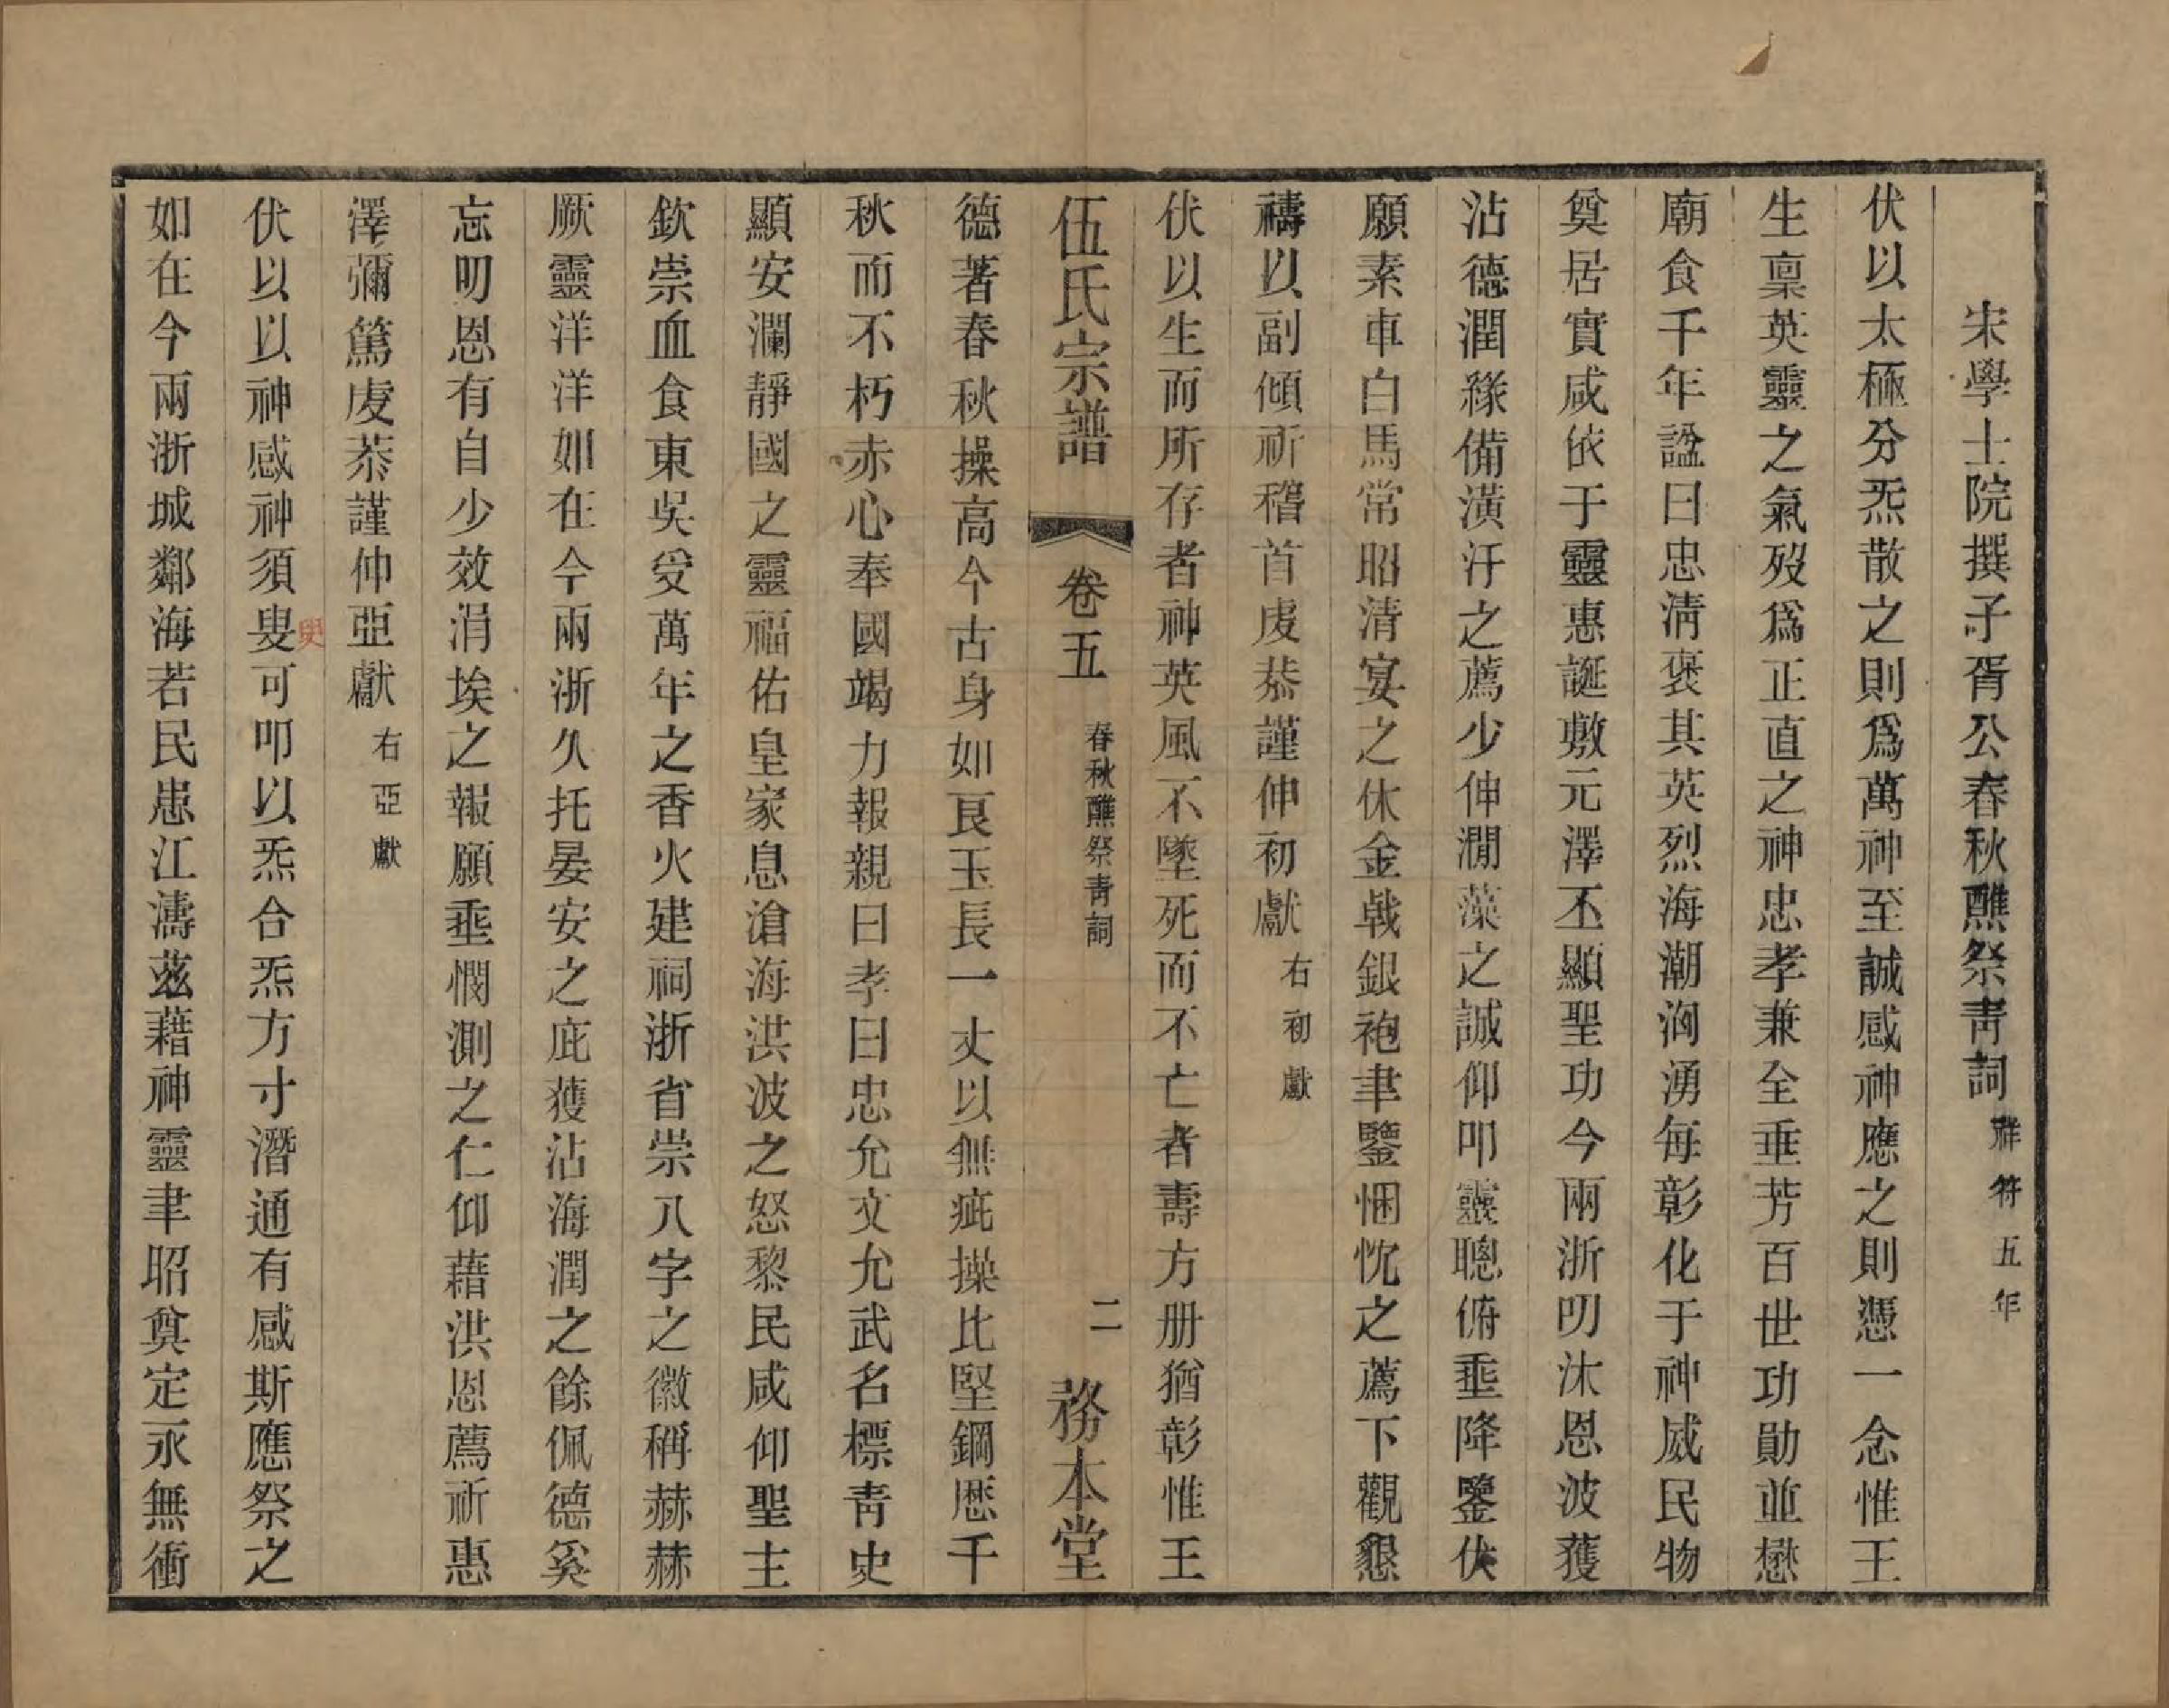 宋學士院撰子胥公春秋醮祭青詞祥符五年
伏以太極分炁散之則爲萬神至誠感神應之則憑一念惟王
生稟英靈之氣歿爲正直之神忠孝兼全垂芳百世功勛並懋
廟食千年諡曰忠淸褒其英烈海潮洶湧每彰化于神威民物
奠居實咸依于靈惠誕敷元澤丕顯聖功今兩浙叨沐恩波獲
沾德潤緣備潢汙之薦少伸澗藻之誠仰叩靈聰俯垂降鑒伏
願素車白馬常昭清宴之休金戟銀袍聿鑒悃忱之薦下觀懇
禱以副傾祈稽首虔恭謹伸初獻右初獻
伏以生而所存者神英風不墜死而不亡者壽方册猶彰惟王
伍氏宗譜 卷五 春秋醮祭靑詞 二 務本堂
德著春秋操高今古身如良玉長一丈以無疵操比堅鋼歷千
秋而不朽赤心奉國竭力報親曰孝曰忠允文允武名標靑史
顯安瀾靜國之靈福佑皇家息滄海洪波之怒黎民咸仰聖主
欽崇血食東吳受萬年之香火建祠浙省崇八字之徽稱赫赫
厥靈洋洋如在今兩浙久托晏安之庇獲沾海潤之餘佩德奚
忘叨恩有自少效涓埃之報願垂憫測之仁仰藉洪恩薦祈惠
澤彌篤虔恭謹伸亞獻右亞獻
伏以以神感神須臾可叩以炁合炁方寸潛通有感斯應祭之
如在今兩浙城鄰海若民患江濤兹藉神靈聿昭奠定永無衝